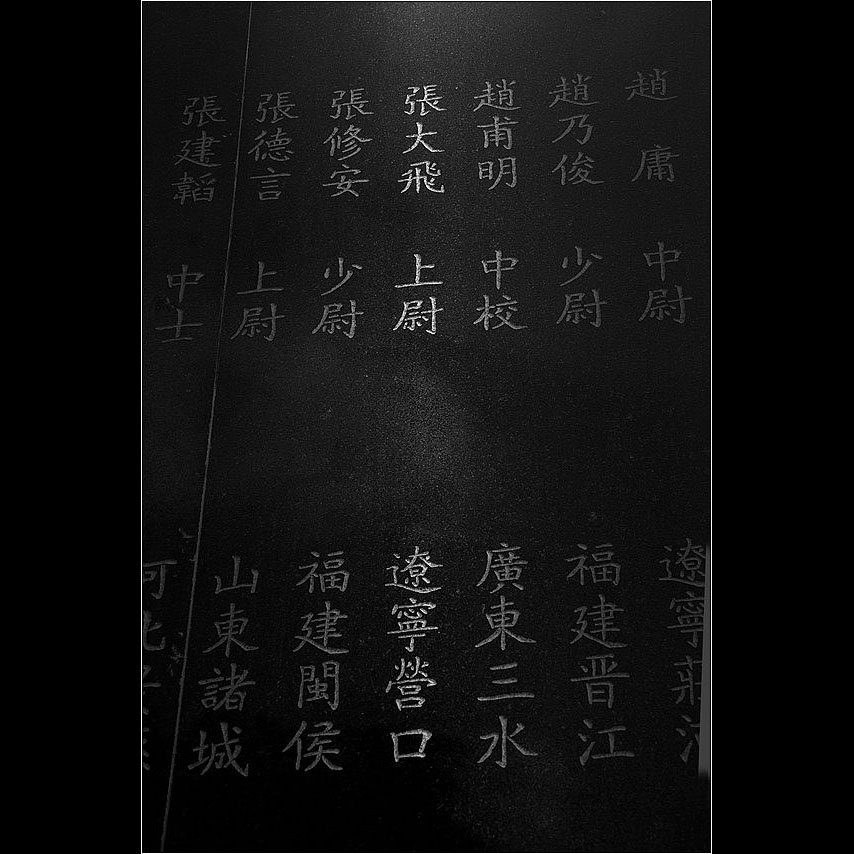 趙庸 中尉 遼寧莊
趙乃俊 少尉 福建晋江
趙甫明 中校 廣東三水
張大飛 上尉 遼寧營口
張修安 少尉 福建閩侯
張德言 上尉 山東諸城
張建韜 中士 河北